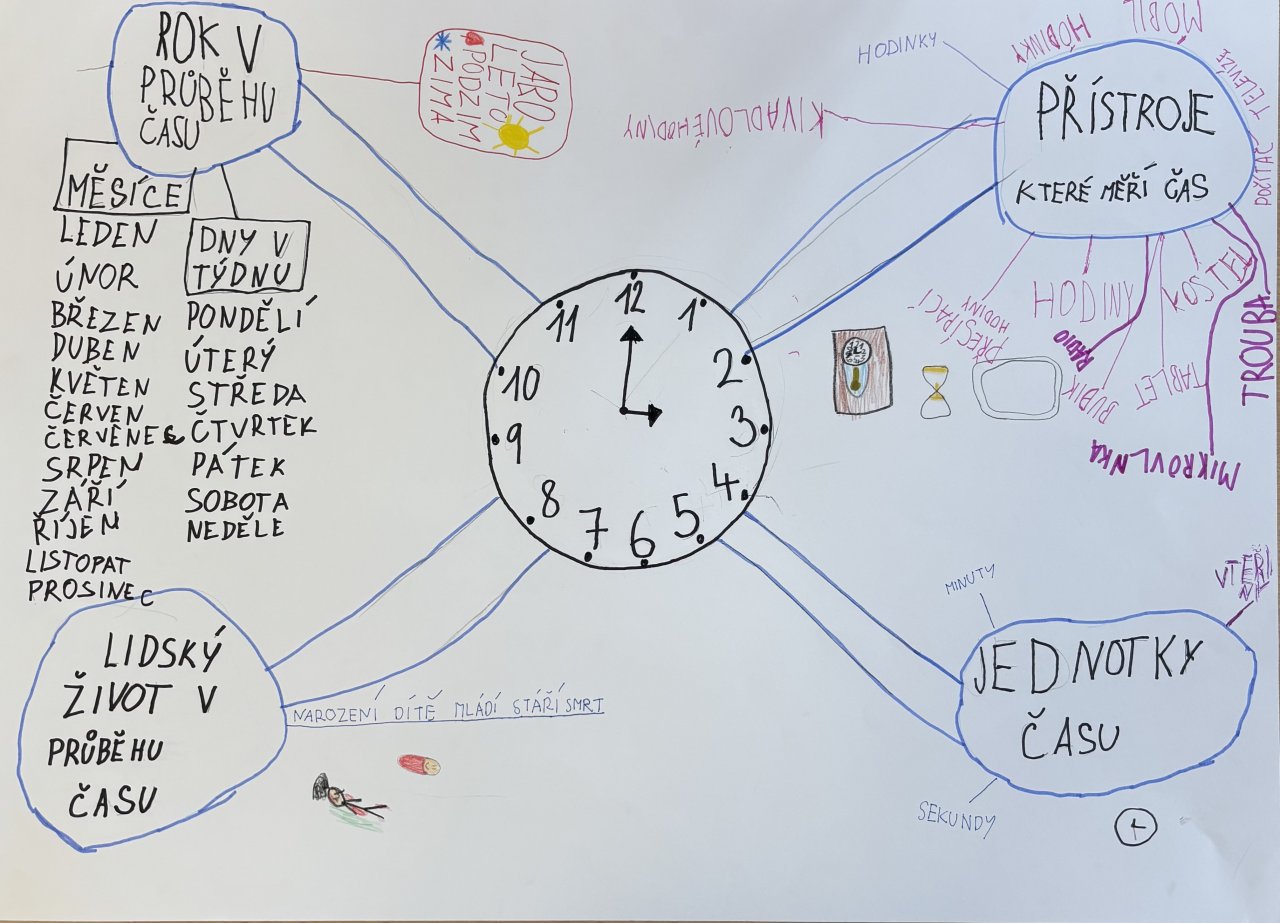 ROK V
PRŮBĚHU
ČASU
JARO
LÉTO
PODZIM
ZIMA
MĚSÍCE
LEDEN
ÚNOR
BŘEZEN
DUBEN
KVĚTEN
ČERVEN
ČERVENEC
SRPEN
ZÁŘÍ
ŘÍJEN
LISTOPAT
PROSINEC
DNY V
TÝDNU
PONDĚLÍ
ÚTERÝ
STŘEDA
ČTVRTEK
PÁTEK
SOBOTA
NEDĚLE
12
1
2
3
4
5
6
7
8
9
10
11
PŘÍSTROJE
KTERÉ MĚŘÍ ČAS
HODINKY
HODINKY
MOBIL
TELEVIZE
POČÍTAČ
KIVADLOVÉ HODINY
PŘESÍPACÍ
HODINY
HODINY
RÁDIO
BUDÍK
TABLET
KOSTEL
TROUBA
MIKROVLNKA
LIDSKÝ
ŽIVOT V
PRŮBĚHU
ČASU
NAROZENÍ DÍTĚ MLÁDÍ STÁŘÍ SMRT
JEDNOTKY
ČASU
MINUTY
SEKUNDY